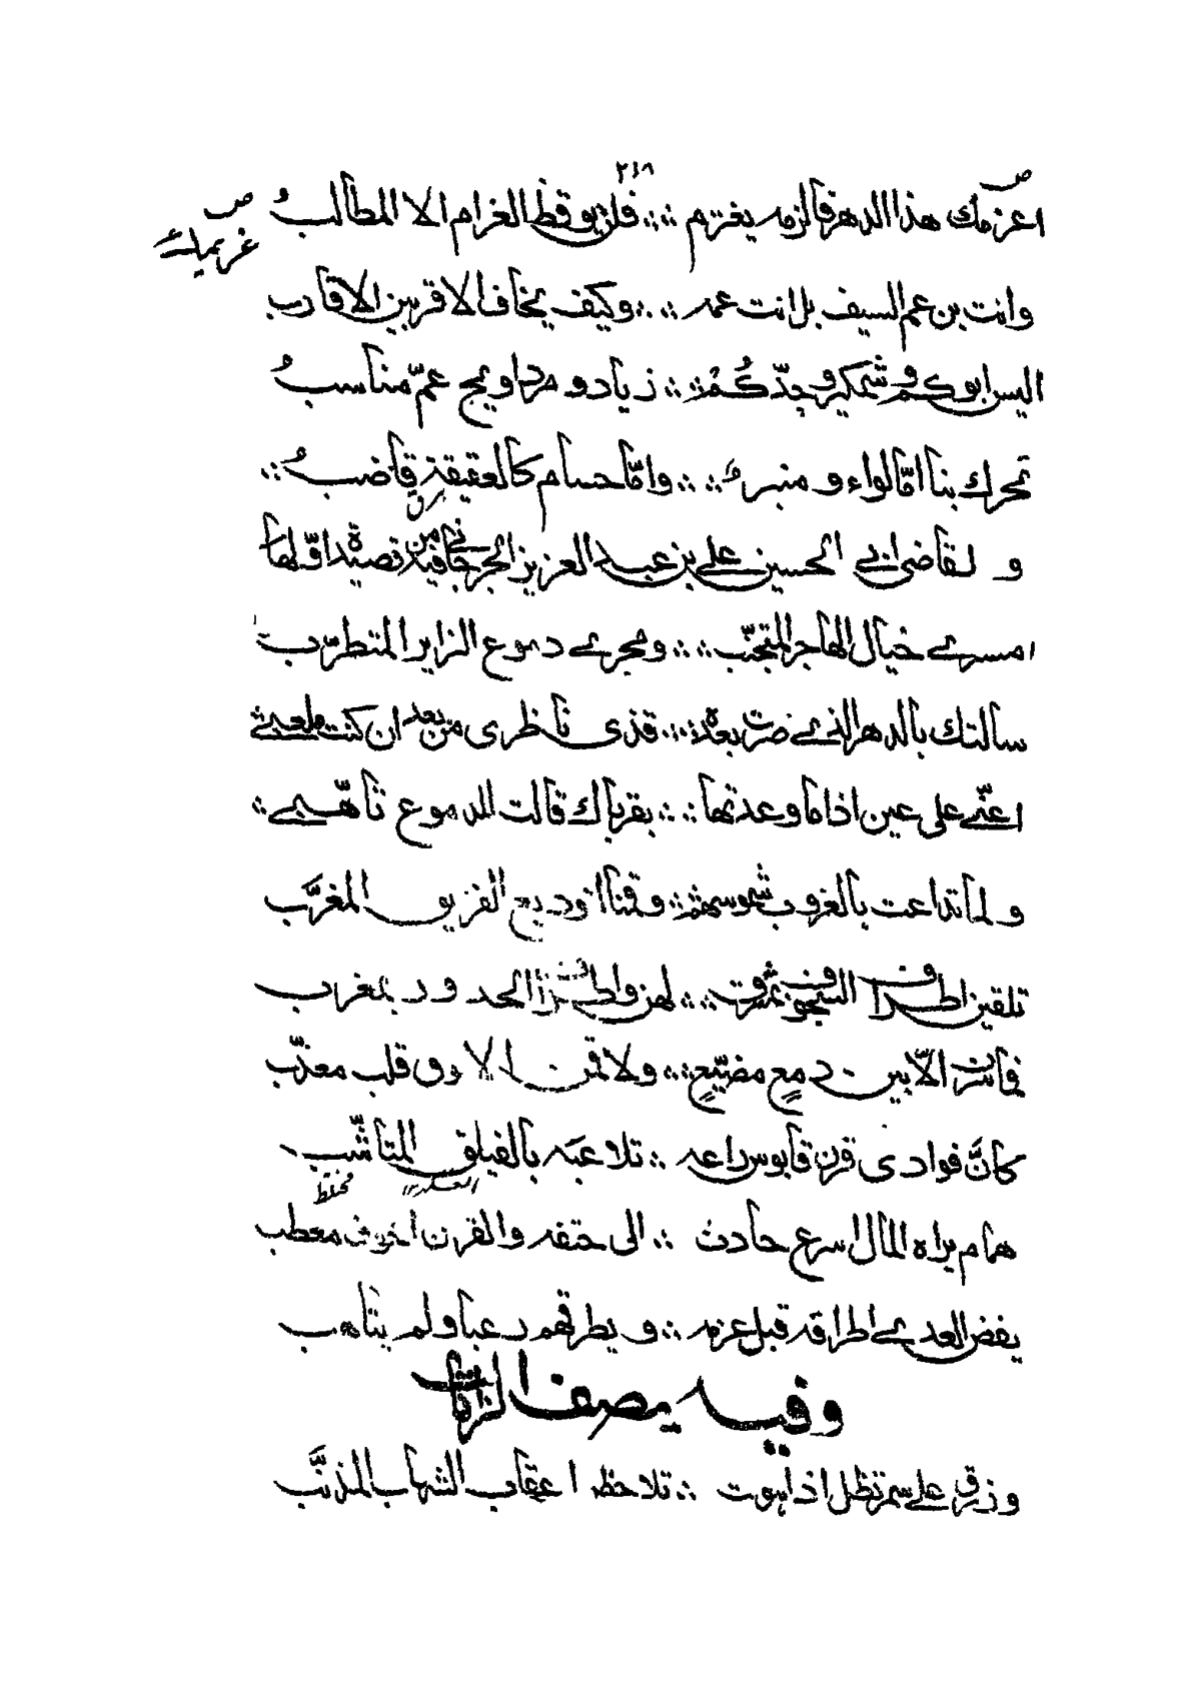 ٢١٨
اعزمك هذا الدهر فالزمه يغترم ∴ فلن يوقظ الغرام الا المطالبُ
ص
ص غريمك
وانت بن عم السيف بل انت عمه ∴ وكيف يخاف الاقربين الاقارب
اليس ابوكم وشمكير وجدّكُمْ ∴ زياد و مرداويج عمّ مناسبُ
تحرك بنا امّا لواء و منبر ∴ وامّا حسام كالعقيقة قاضبُ ∴
و لقاضى ابي الحسين علي بن عبد العزيز الجرجاني فيه من قصيدة اوّلها
امسرى خيال الهاجر المتجنّب ∴ ومجرى دموع الزاير المتطرّب
سالتك بالدهر الذي ضرت بعده ∴ قذى ناظرى من بعد ان كنت ملعبى
اعنّي على عين اذا ما وعدتها ∴ بقرباك قالت للدموع تاهّبي ∴
و لما تداعت بالغروب شموسهم ∴ وقمنا لتوديع الفريق المغرّب
تلقين اطراف السجوف بمشرق ∴ لهن واطراف الخدور بمغرب
فما سرن الّا بين دمع مضيّع ∴ ولا قمن الا فوق قلب معذّب
كانّ فوادى قرن قابوس راعه ∴ تلاعبه بالفيلق المتاشّب
العسكر مختلط
همام يراه المال اسرع حادث ∴ الى حتفه والقرن اخوف معطب
يفض العدى اطراقه قبل عزمه ∴ و يطرقهم رعبا ولم يتاهب
وفيه يصف الزانات
وزرق على سمر تظل اذا هوت ∴ تلاحظ اعقاب الشهاب المذنّب